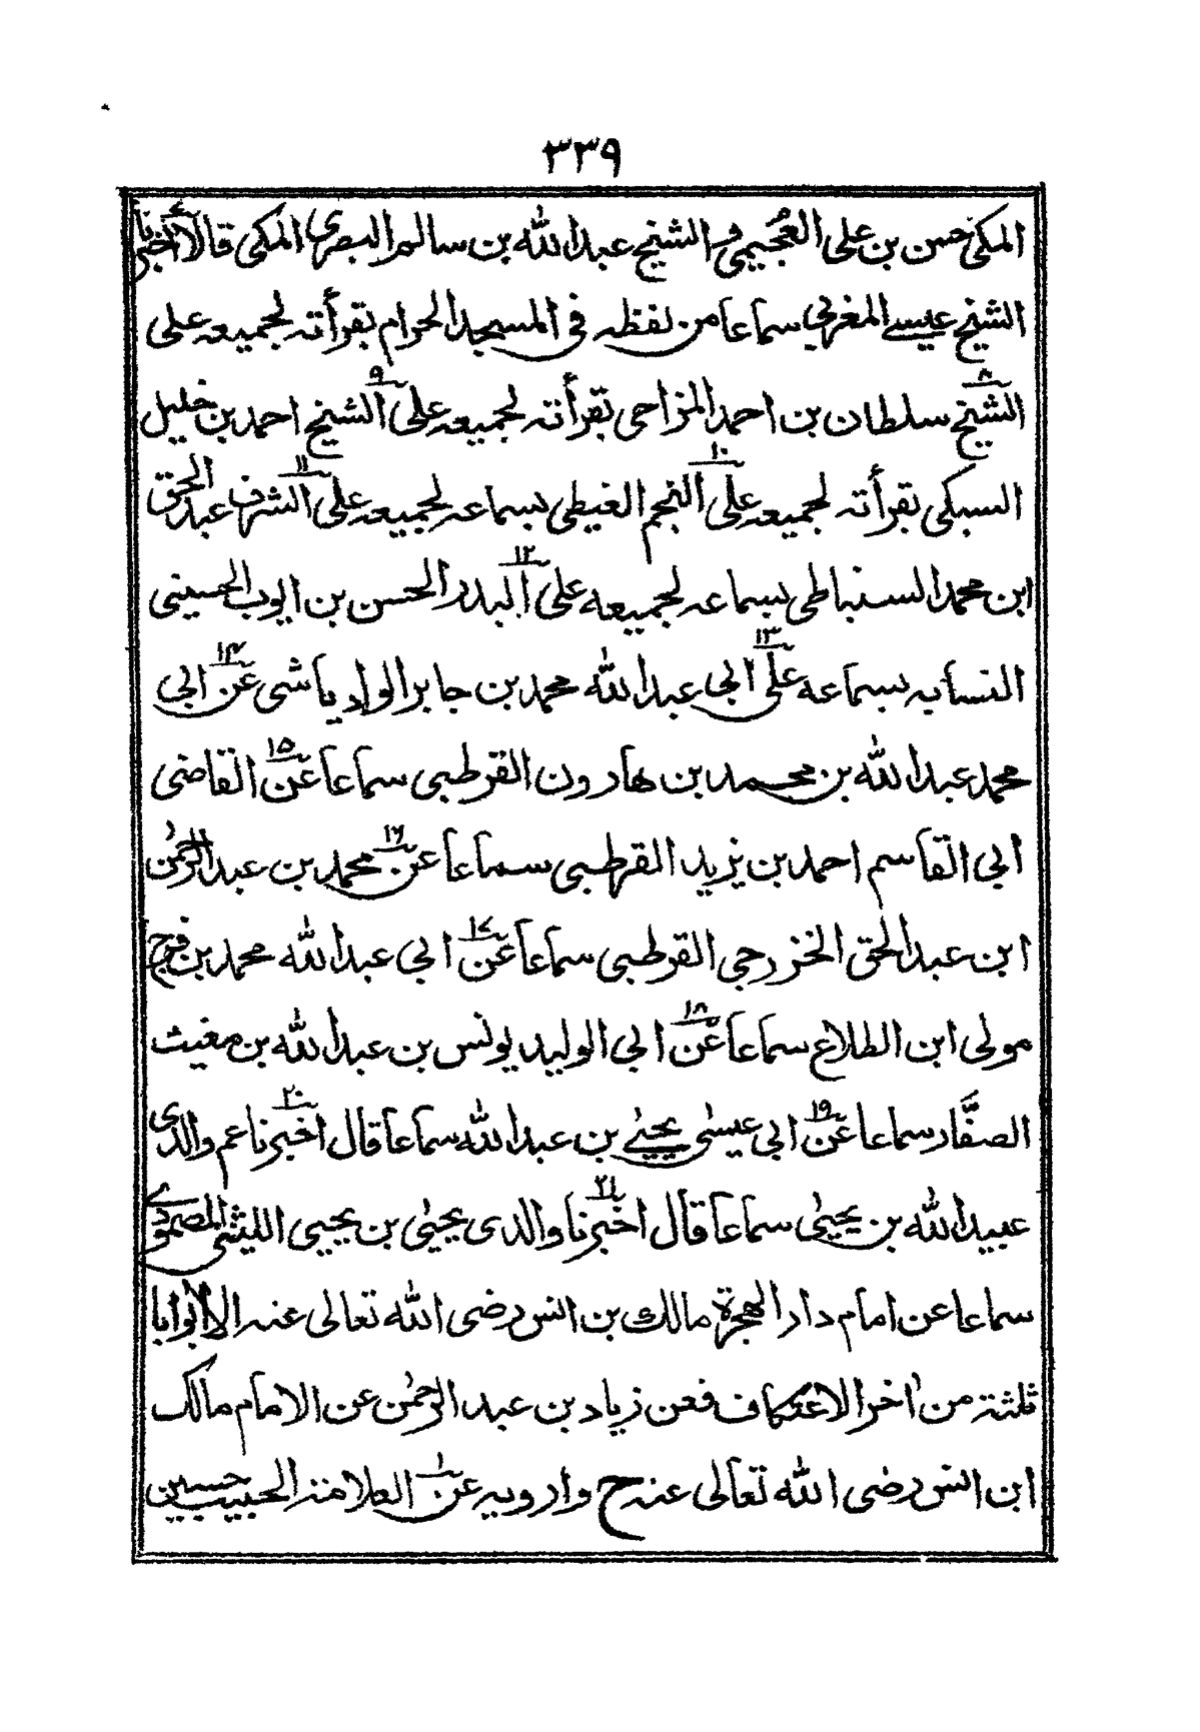 ٣٣٩
المكي حسن بن علي العُجَيمي و الشيخ عبد الله بن سالم البصري المكي قالا أخبرنا
الشيخ عيسے المغربي سماعا من لفظه في المسجد الحرام بقرأته لجميعه على
الشيخ٨ سلطان بن احمد المزاحي بقرأته لجميعه على٩ الشيخ احمد بن خليل
السبكي بقرأته لجميعه على١٠ النجم الغيطي بسماعه لجميعه على١١ الشرف عبد الحق
ابن محمد السنباطي بسماعه لجميعه على١٢ البدر الحسن بن ايوب الحسيني
النسابه بسماعه على١٣ ابي عبد الله محمد بن جابر الوادياشي عن١٤ ابي
محمد عبد الله بن محمد بن هارون القرطبي سماعا عن١٥ القاضي
ابي القاسم احمد بن يزيد القرطبي سماعا عن١٦ محمد بن عبد الرحمٰن
ابن عبد الحق الخزرجي القرطبي سماعا عن١٧ ابي عبد الله محمد بن فرج
مولى ابن الطلاع سماعا عن١٨ ابي الوليد يونس بن عبد الله بن مغيث
الصفَّار سماعا عن١٩ ابي عيسىٰ يحيىٰ بن عبد الله سماعا قال اخبرنا٢٠ عم والدي
عبيد الله بن يحيىٰ سماعا قال اخبرنا٢١ والدي يحيىٰ بن يحيى الليثي المصمودے
سماعا عن امام دار الهجرة مالك بن انس رضى الله تعالى عنه الا ابوابا
ثلثة من اٰخر الاعتكاف فعن زياد بن عبد الرحمٰن عن الامام مالك
ابن انس رضى الله تعالى عنه ح وارويه عن١ العلامة الحبيب حسين